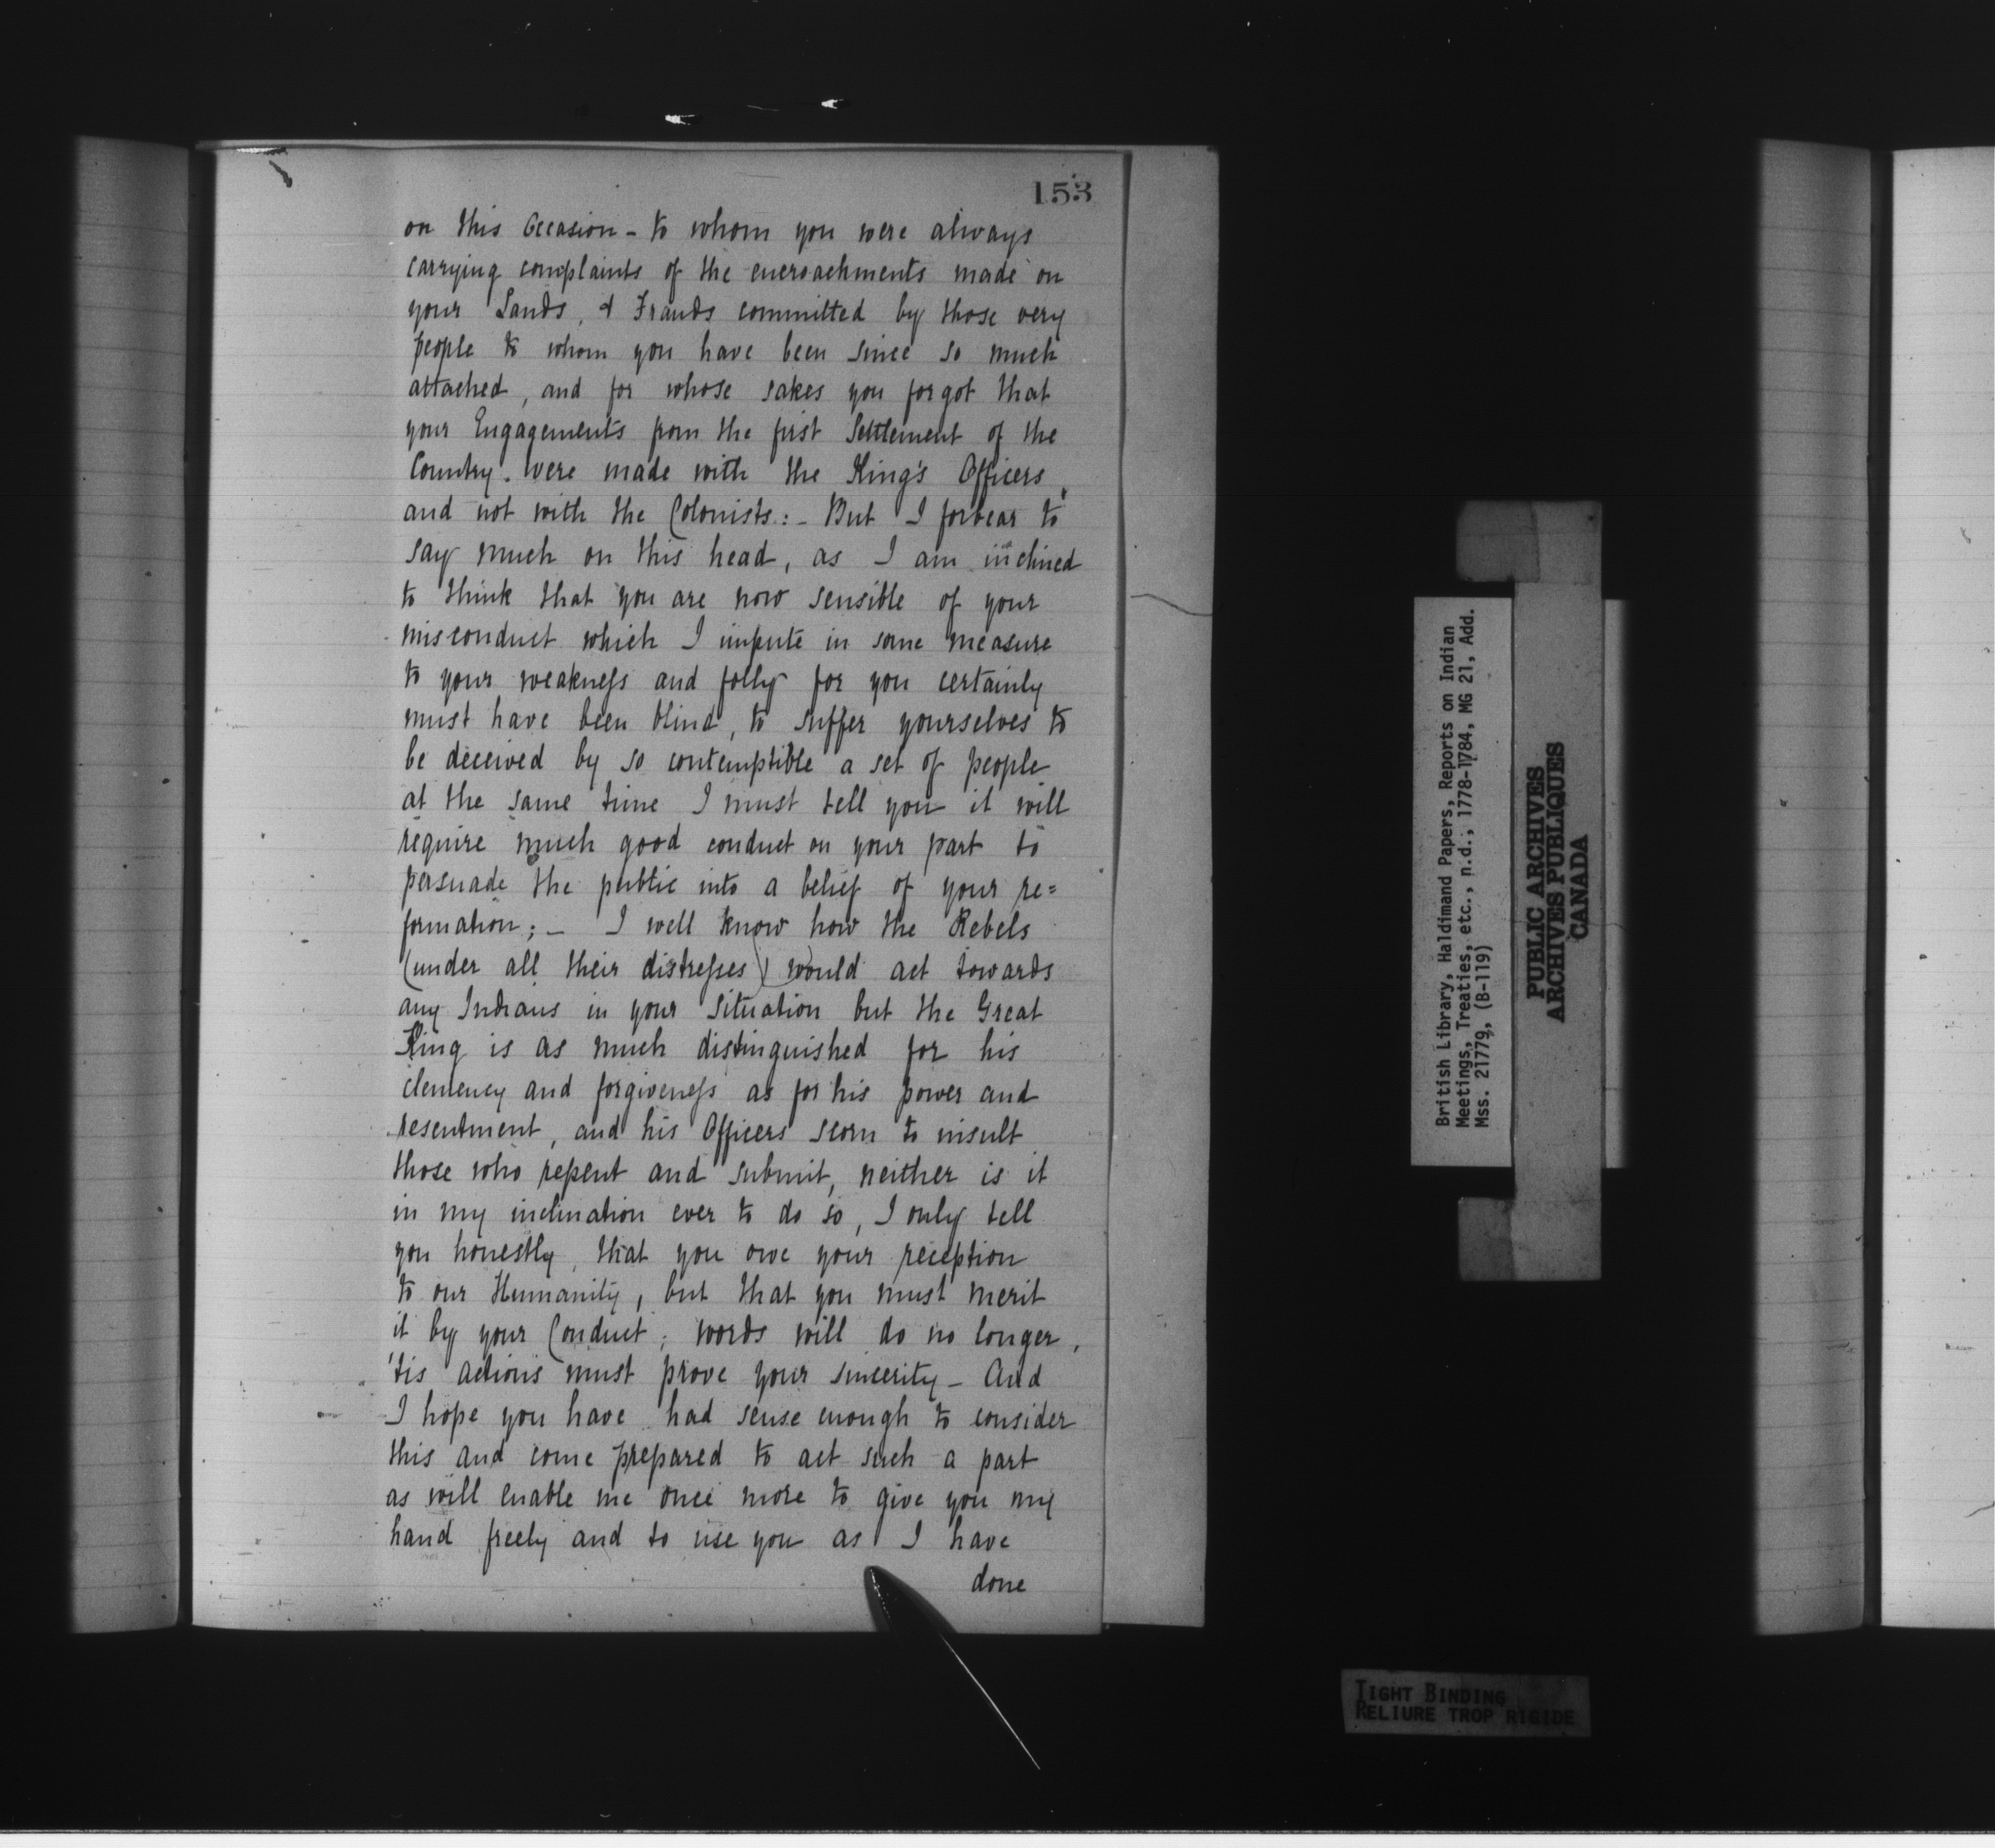 153
on this Occasion - to whom you were always
carrying complaints of the encroachments made on
your Lands, & Frauds committed by those very
people to whom you have been since so much
attached, and for whose sakes you forgot that
your Engagements from the first Settlement of the
Country. were made with the King's Officers
and not with the Colonists: - But I forbear to
say much on this head, as I am inclined
to think that you are now sensible of your
misconduct which I impute in some measure
to your weakness and folly for you certainly
must have been blind, to suffer yourselves to
be deceived by so contemptible a set of people
at the same time I must tell you it will
require much good conduct on your part to
persuade the public into a belief of your re=
formation; - I well know how the Rebels
(under all their distresses) would act towards
any Indians in your situation but the Great
King is as much distinguished for his
clemency and forgiveness as for his power and
resentment, and his Officers scorn to insult
those who repent and submit, neither is it
in my inclination ever to do so, I only tell
you honestly, that you owe your reception
to our Humanity, but that you must merit
it by your Conduct; words will do no longer,
'tis actions must prove your sincerity - And
I hope you have had sense enough to consider
this and come prepared to act such a part
as will enable me once more to give you my
hand freely and to use you as I have
done
British Library, Haldimand Papers, Reports on Indian
Meetings, Treaties, etc., n.d., 1778-1784, MG 21, Add.
Mss. 21779, (B-119)
PUBLIC ARCHIVES
ARCHIVES PUBLIQUES
CANADA
TIGHT BINDING
RELIURE TROP RIGIDE